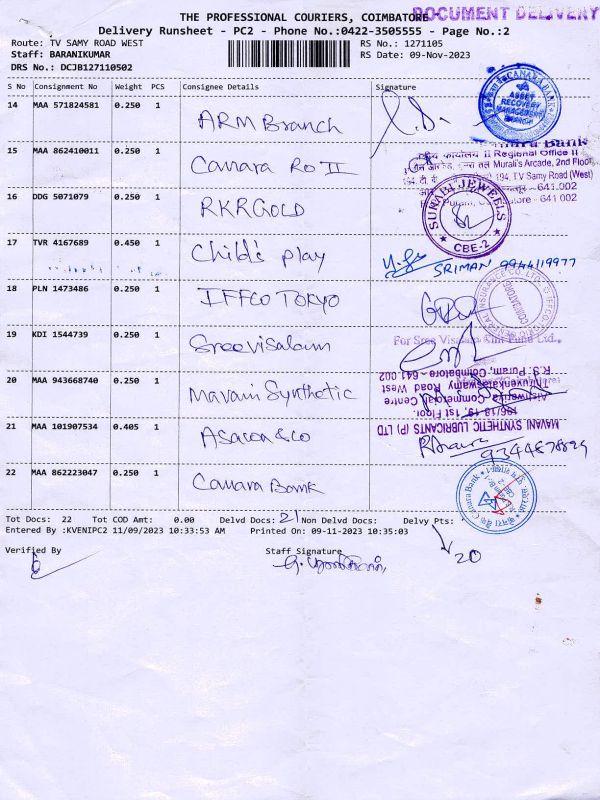 THE PROFESSIONAL COURIERS, COIMBATORE
DOCUMENT DELIVERY
Delivery Runsheet - PC2 - Phone No.:0422-3505555 - Page No.:2
Route: TV SAMY ROAD WEST
RS No.: 1271105
Staff: BARANIKUMAR
RS Date: 09-Nov-2023
DRS No.: DCJB127110502
S No Consignment No Weight PCS Consignee Details Signature
14 MAA 571824581 0.250 1 ARM Branch
CANARA BANK
ASSET RECOVERY MANAGEMENT BRANCH
15 MAA 862410011 0.250 1 Canara Ro II
Canara Bank
कार्यालय II Regional Office II
Murali's Arcade, 2nd Floor,
194, T.V Samy Road (West)
Puram, Coimbatore - 641 002
16 DDG 5071079 0.250 1 RKRGOLD
JEWELS
CBE-2
17 TVR 4167689 0.450 1 Child's play
SRIMAN 9944119977
18 PLN 1473486 0.250 1 IFFCO TOKYO
GENERAL INSURANCE CO. LTD.
COIMBATORE
19 KDI 1544739 0.250 1 Sreevisalam
For Sree Visalam Chit Fund Ltd.,
20 MAA 943668740 0.250 1 Mavani Synthetic
MAVANI SYNTHETIC LUBRICANTS (P) LTD
196/18, 19, 1st Floor,
Aishwariya Commercial Centre
Thiruvenkataswamy Road West
R.S. Puram, Coimbatore - 641 002
21 MAA 101907534 0.405 1 & co
22 MAA 862223047 0.250 1 Canara Bank
Canara Bank
Tot Docs: 22 Tot COD Amt: 0.00 Delvd Docs: 21 Non Delvd Docs: Delvy Pts: 20
Entered By :KVENIPC2 11/09/2023 10:33:53 AM Printed On: 09-11-2023 10:35:03
Verified By
Staff Signature